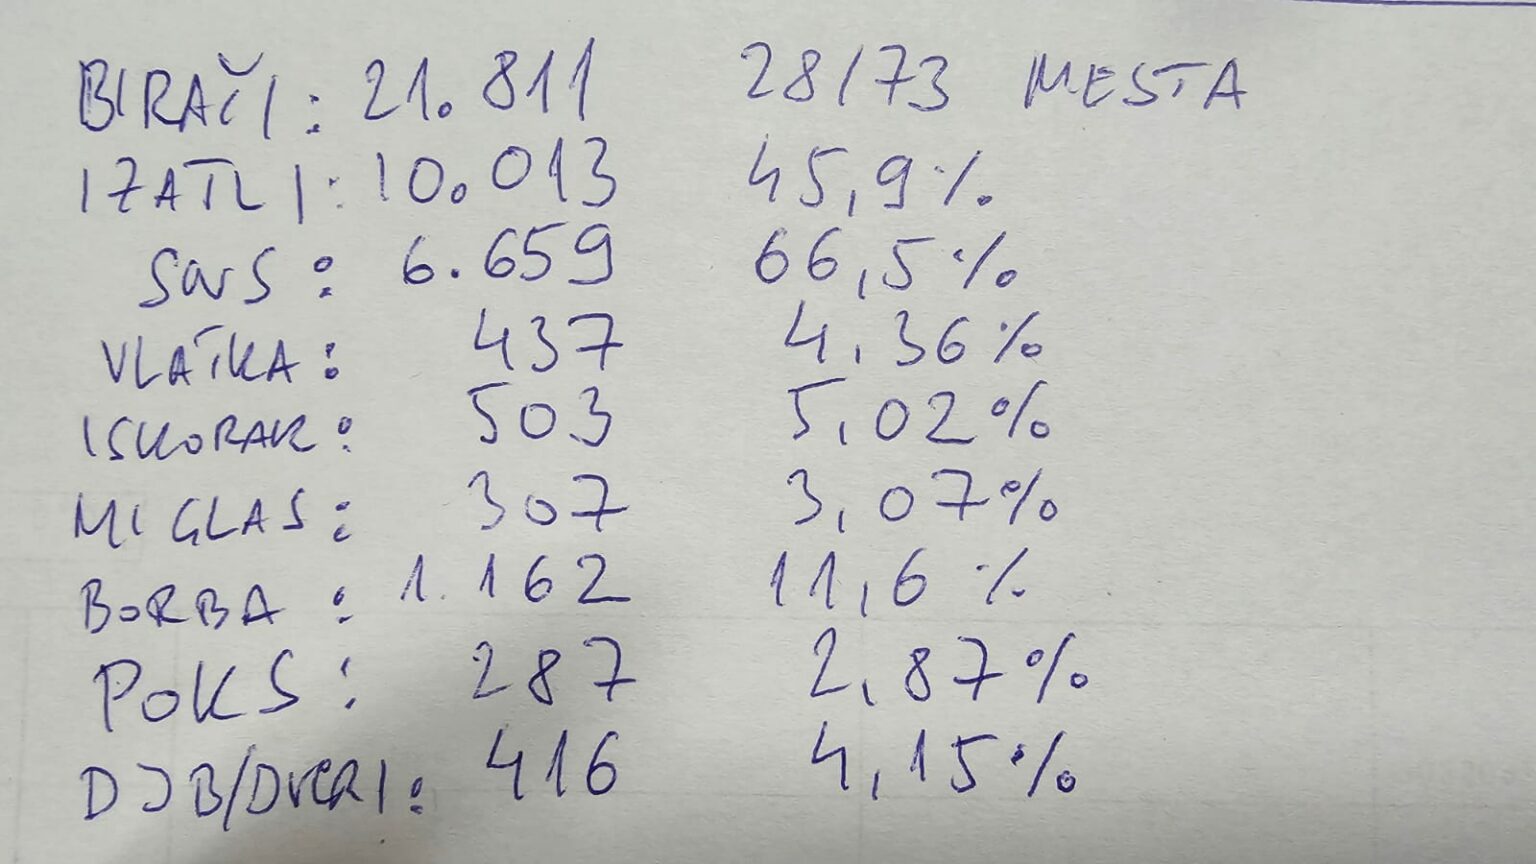 BIRAČI: 21.811 28/73 MESTA
IZAŠLI: 10.013 45,9%
SNS: 6.659 66,5%
VLATKA: 437 4,36%
ISKORAK: 503 5,02%
MI GLAS: 307 3,07%
BORBA: 1.162 11,6%
POKS: 287 2,87%
DJB/DVERI: 416 4,15%